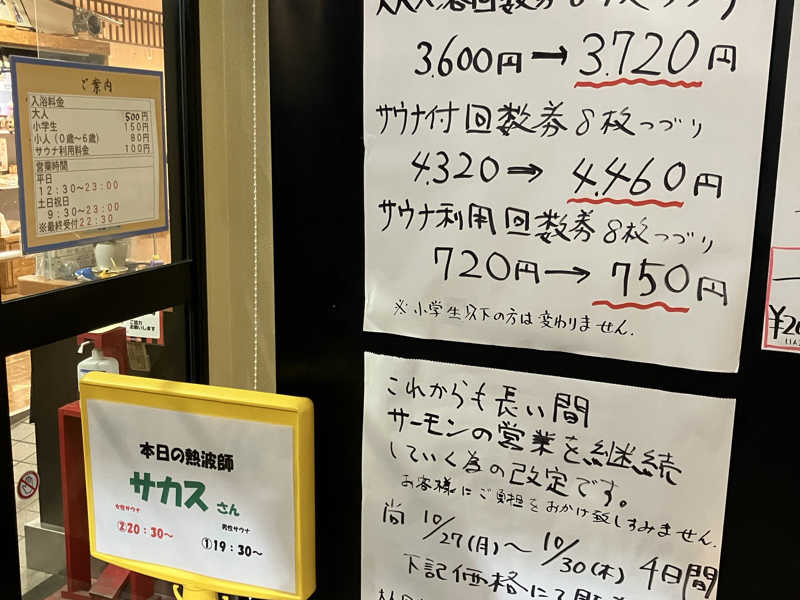 ご案内
入浴料金
大人 500円
小学生 150円
小人（0歳～6歳） 80円
サウナ利用料金 100円
営業時間
平日
12:30～23:00
土日祝日
9:30～23:00
※最終受付22:30
本日の熱波師
サカス さん
女性サウナ
②20：30～
男性サウナ
①19：30～
3.600円→3.720円
サウナ付回数券8枚つづり
4.320⇒4.460円
サウナ利用回数券8枚つづり
720円→750円
※小学生以下の方は変わりません.
これからも長い間
サーモンの営業を継続
していく為の改定です。
お客様にご負担をおかけ致しすみません.
尚 10/27(月)～10/30(木) 4日間
下記価格にて